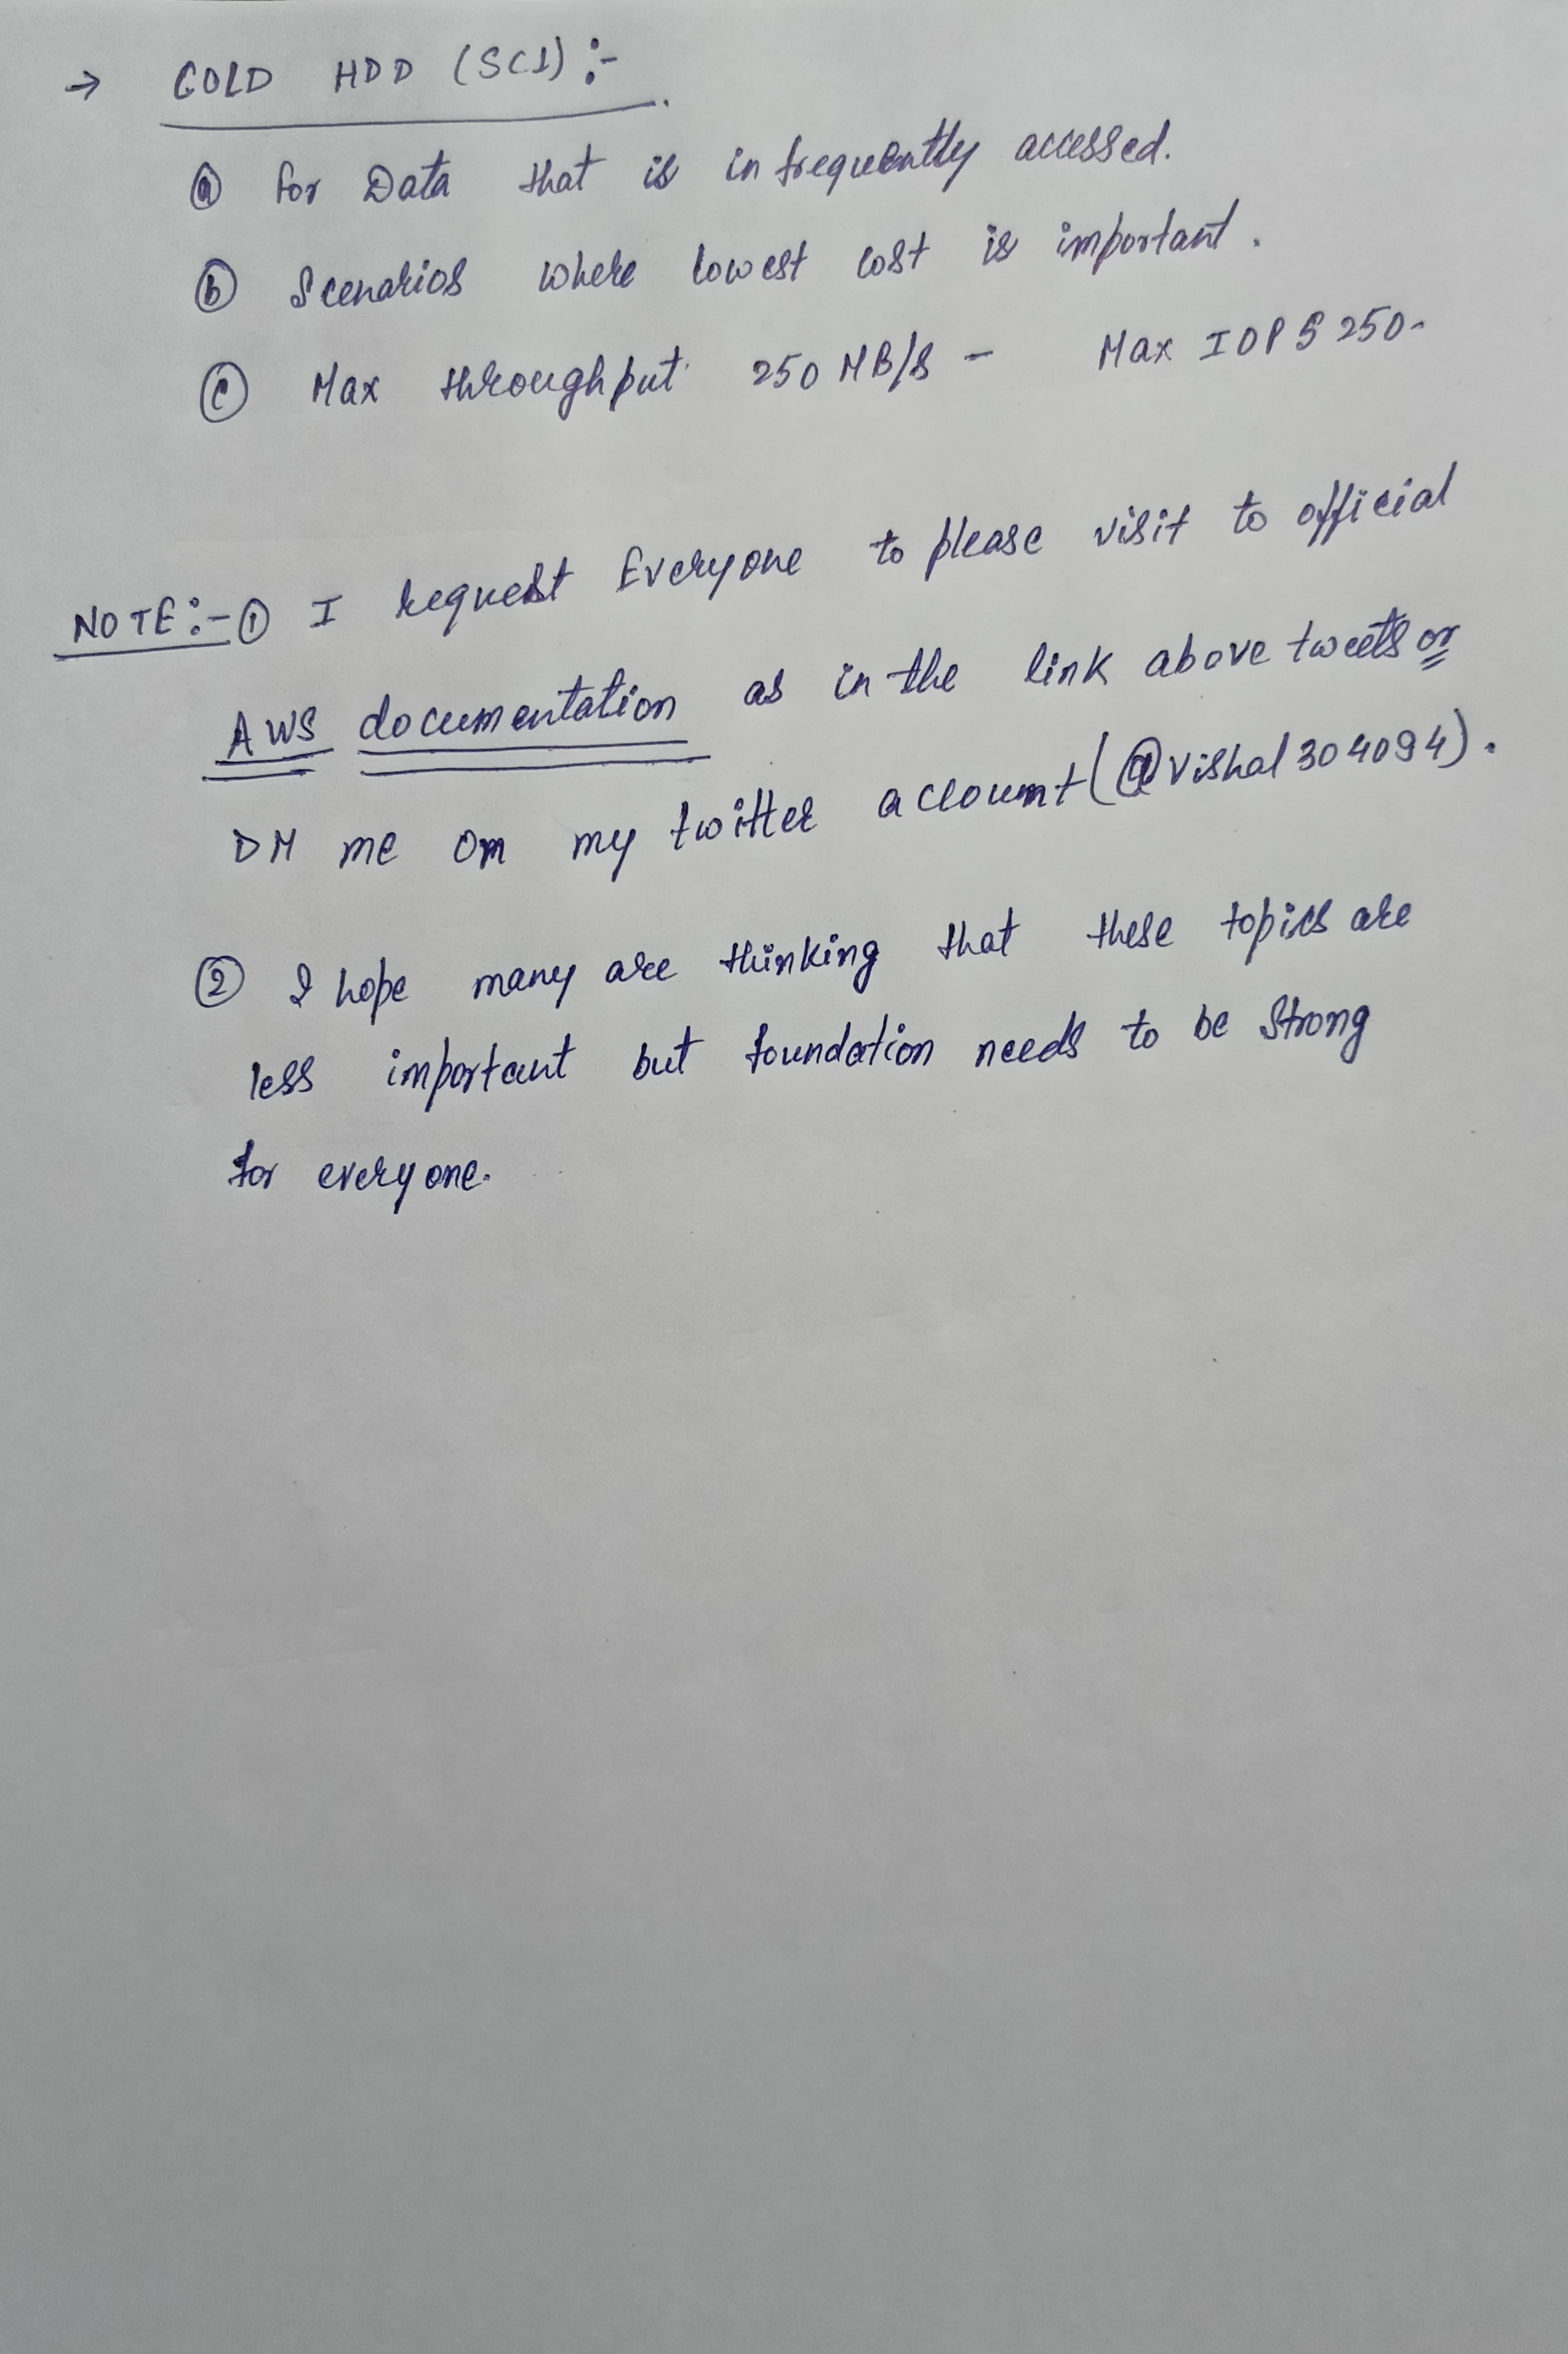 → COLD HDD (SC1) :-
ⓐ For Data that is infrequently accessed.
ⓑ Scenarios where lowest cost is important.
ⓒ Max throughput 250 MB/s - Max IOPS 250.
NOTE :- ① I request Everyone to please visit to official
AWS documentation as in the link above tweets or
DM me on my twitter account (@Vishal304094).
② I hope many are thinking that these topics are
less important but foundation needs to be strong
for everyone.